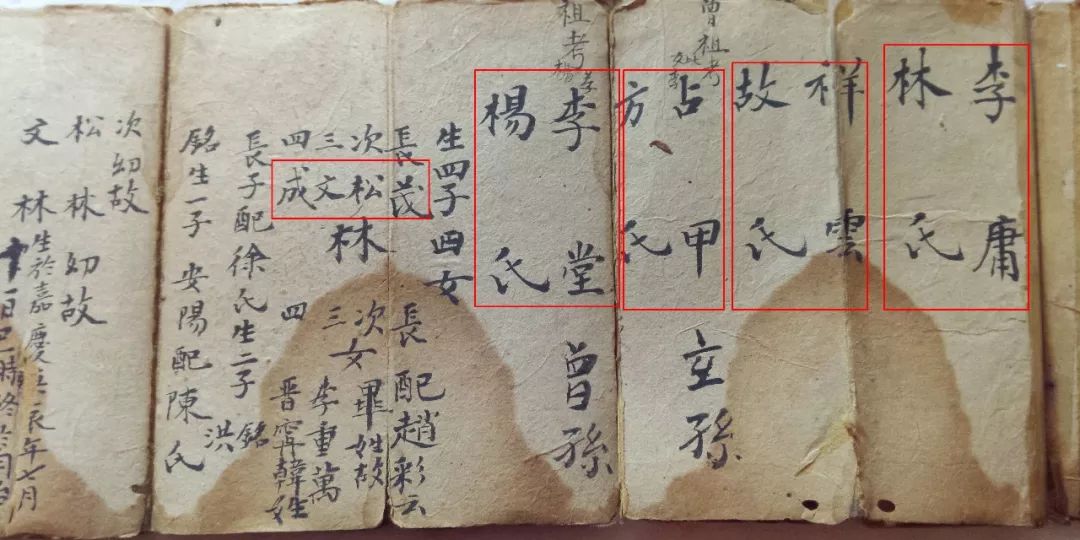 李庸
林氏
祥雲
故氏
曾祖考
占甲 玄孫
方氏
祖考
李堂 曾孫
楊氏
生四子四女
長茂 長配趙彩云
次松 次女畢姓故
三文林 三李重萬
四成 四晋寧韓姓
長子配徐氏生二子銘
洪
銘生一子安陽配陳氏
次幼故
松林幼故
文林生於嘉慶
年七月